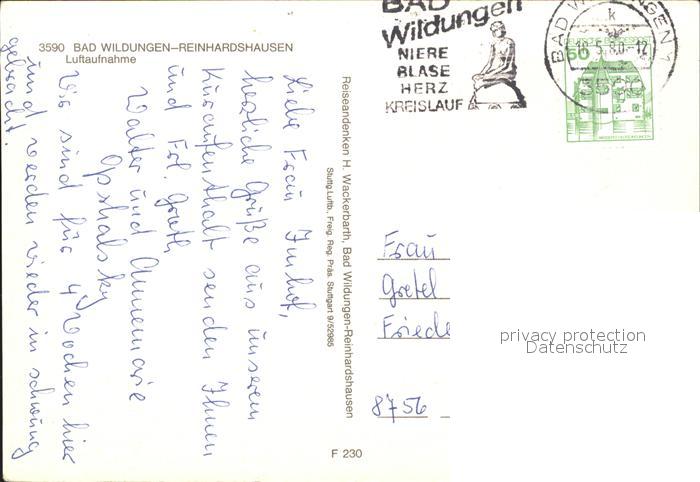 3590 BAD WILDUNGEN–REINHARDSHAUSEN
Luftaufnahme
Liebe Frau Imhof,
herzliche Grüße aus unserem
Kuraufenthalt senden Ihnen
und Frl. Greth
Walter und Annemarie
Opshalsky
Wir sind für 4 Wochen hier
und werden wieder in schwung
gebracht.
Reiseandenken H. Wackerbarth, Bad Wildungen-Reinhardshausen
Stuttg. Luftb., Freig. Reg. Präs. Stuttgart 9/52985
F 230
BAD
Wildungen
NIERE
BLASE
HERZ
KREISLAUF
BAD WILDUNGEN 1
k
-12
3590
Frau
Gretel
Friede
8756
privacy protection
Datenschutz